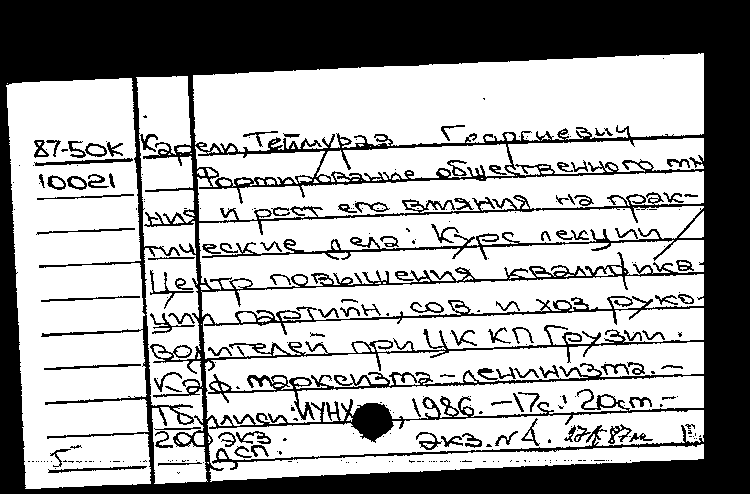 87-50К Карели, Теймураз Георгиевич
10021 Формирование общественного мне
ния и рост его влияния на прак-
тические дела: Курс лекций /
Центр повышения квалифика-
ции партийн., сов. и хоз. руко-
водителей при ЦК КП Грузии.
Каф. марксизма-ленинизма. –
Тбилиси: ИУНХ, 1986. – 17с.; 20см. –
200 экз.
Дсп. Экз. N 4.
5